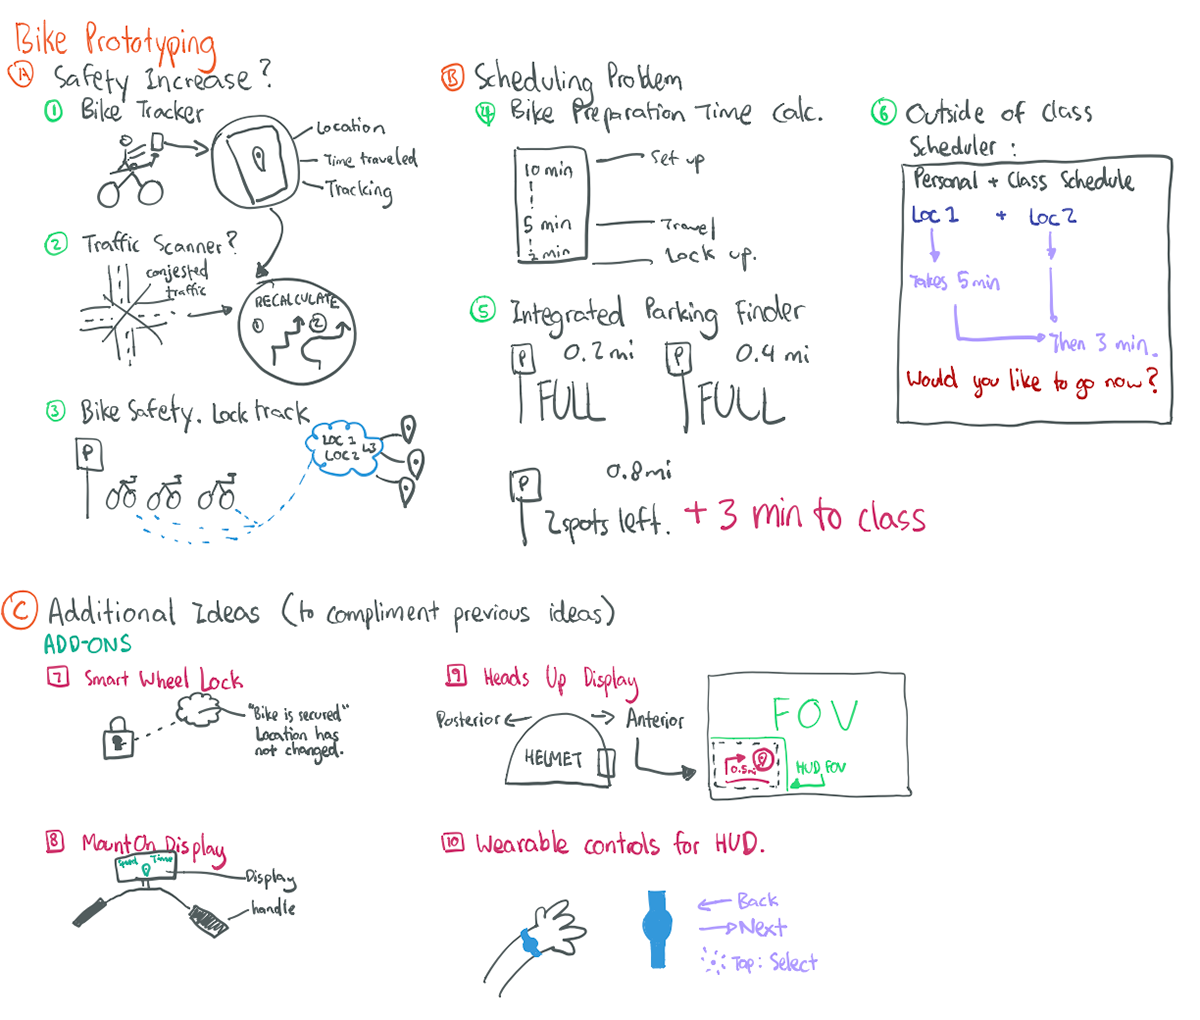 Bike Prototyping
A Safety Increase?
1 Bike Tracker
Location
Time traveled
Tracking
2 Traffic Scanner?
conjested
traffic
RECALCULATE
1 2
3 Bike Safety. Lock track
P
LOC 1
LOC 2 L3
B Scheduling Problem
4 Bike Preparation Time Calc.
10 min
Set up
5 min
Travel
2 min
Lock up.
5 Integrated Parking Finder
P 0.2 mi
FULL
P 0.4 mi
FULL
P 0.8 mi
2 spots left. + 3 min to class
6 Outside of class
Scheduler :
Personal + Class Schedule
Loc 1 + Loc 2
Takes 5 min
Then 3 min.
Would you like to go now?
C Additional Ideas (to compliment previous ideas)
ADD-ONS
7 Smart Wheel Lock
"Bike is secured"
Location has
not changed.
8 Mount On Display
Speed Time
Display
handle
9 Heads Up Display
Posterior
Anterior
HELMET
FOV
0.5mi
HUD FOV
10 Wearable controls for HUD.
Back
Next
Tap: Select